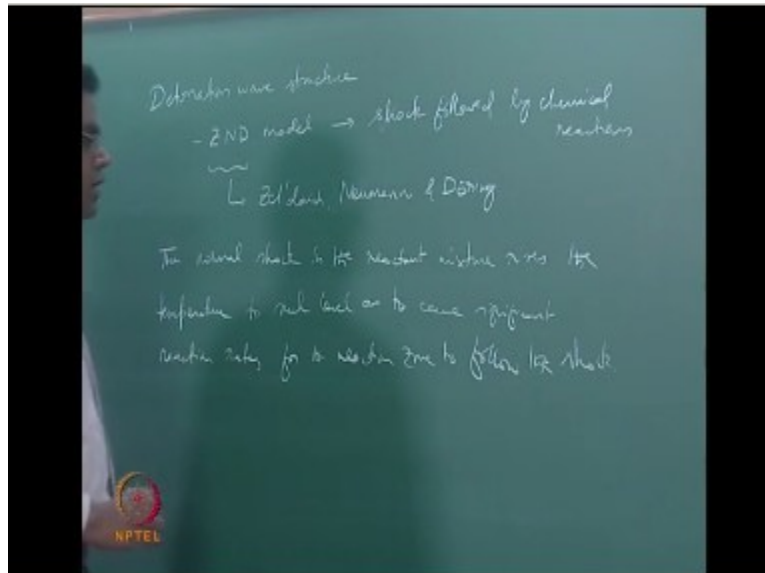 Detonation wave structure
- ZND model → shock followed by chemical
reactions
↳ Zel'dovich, Neumann & Döring
The normal shock in the reactant mixture rises the
temperature to such level as to cause significant
reaction rates, for the reaction zone to follow the shock
NPTEL